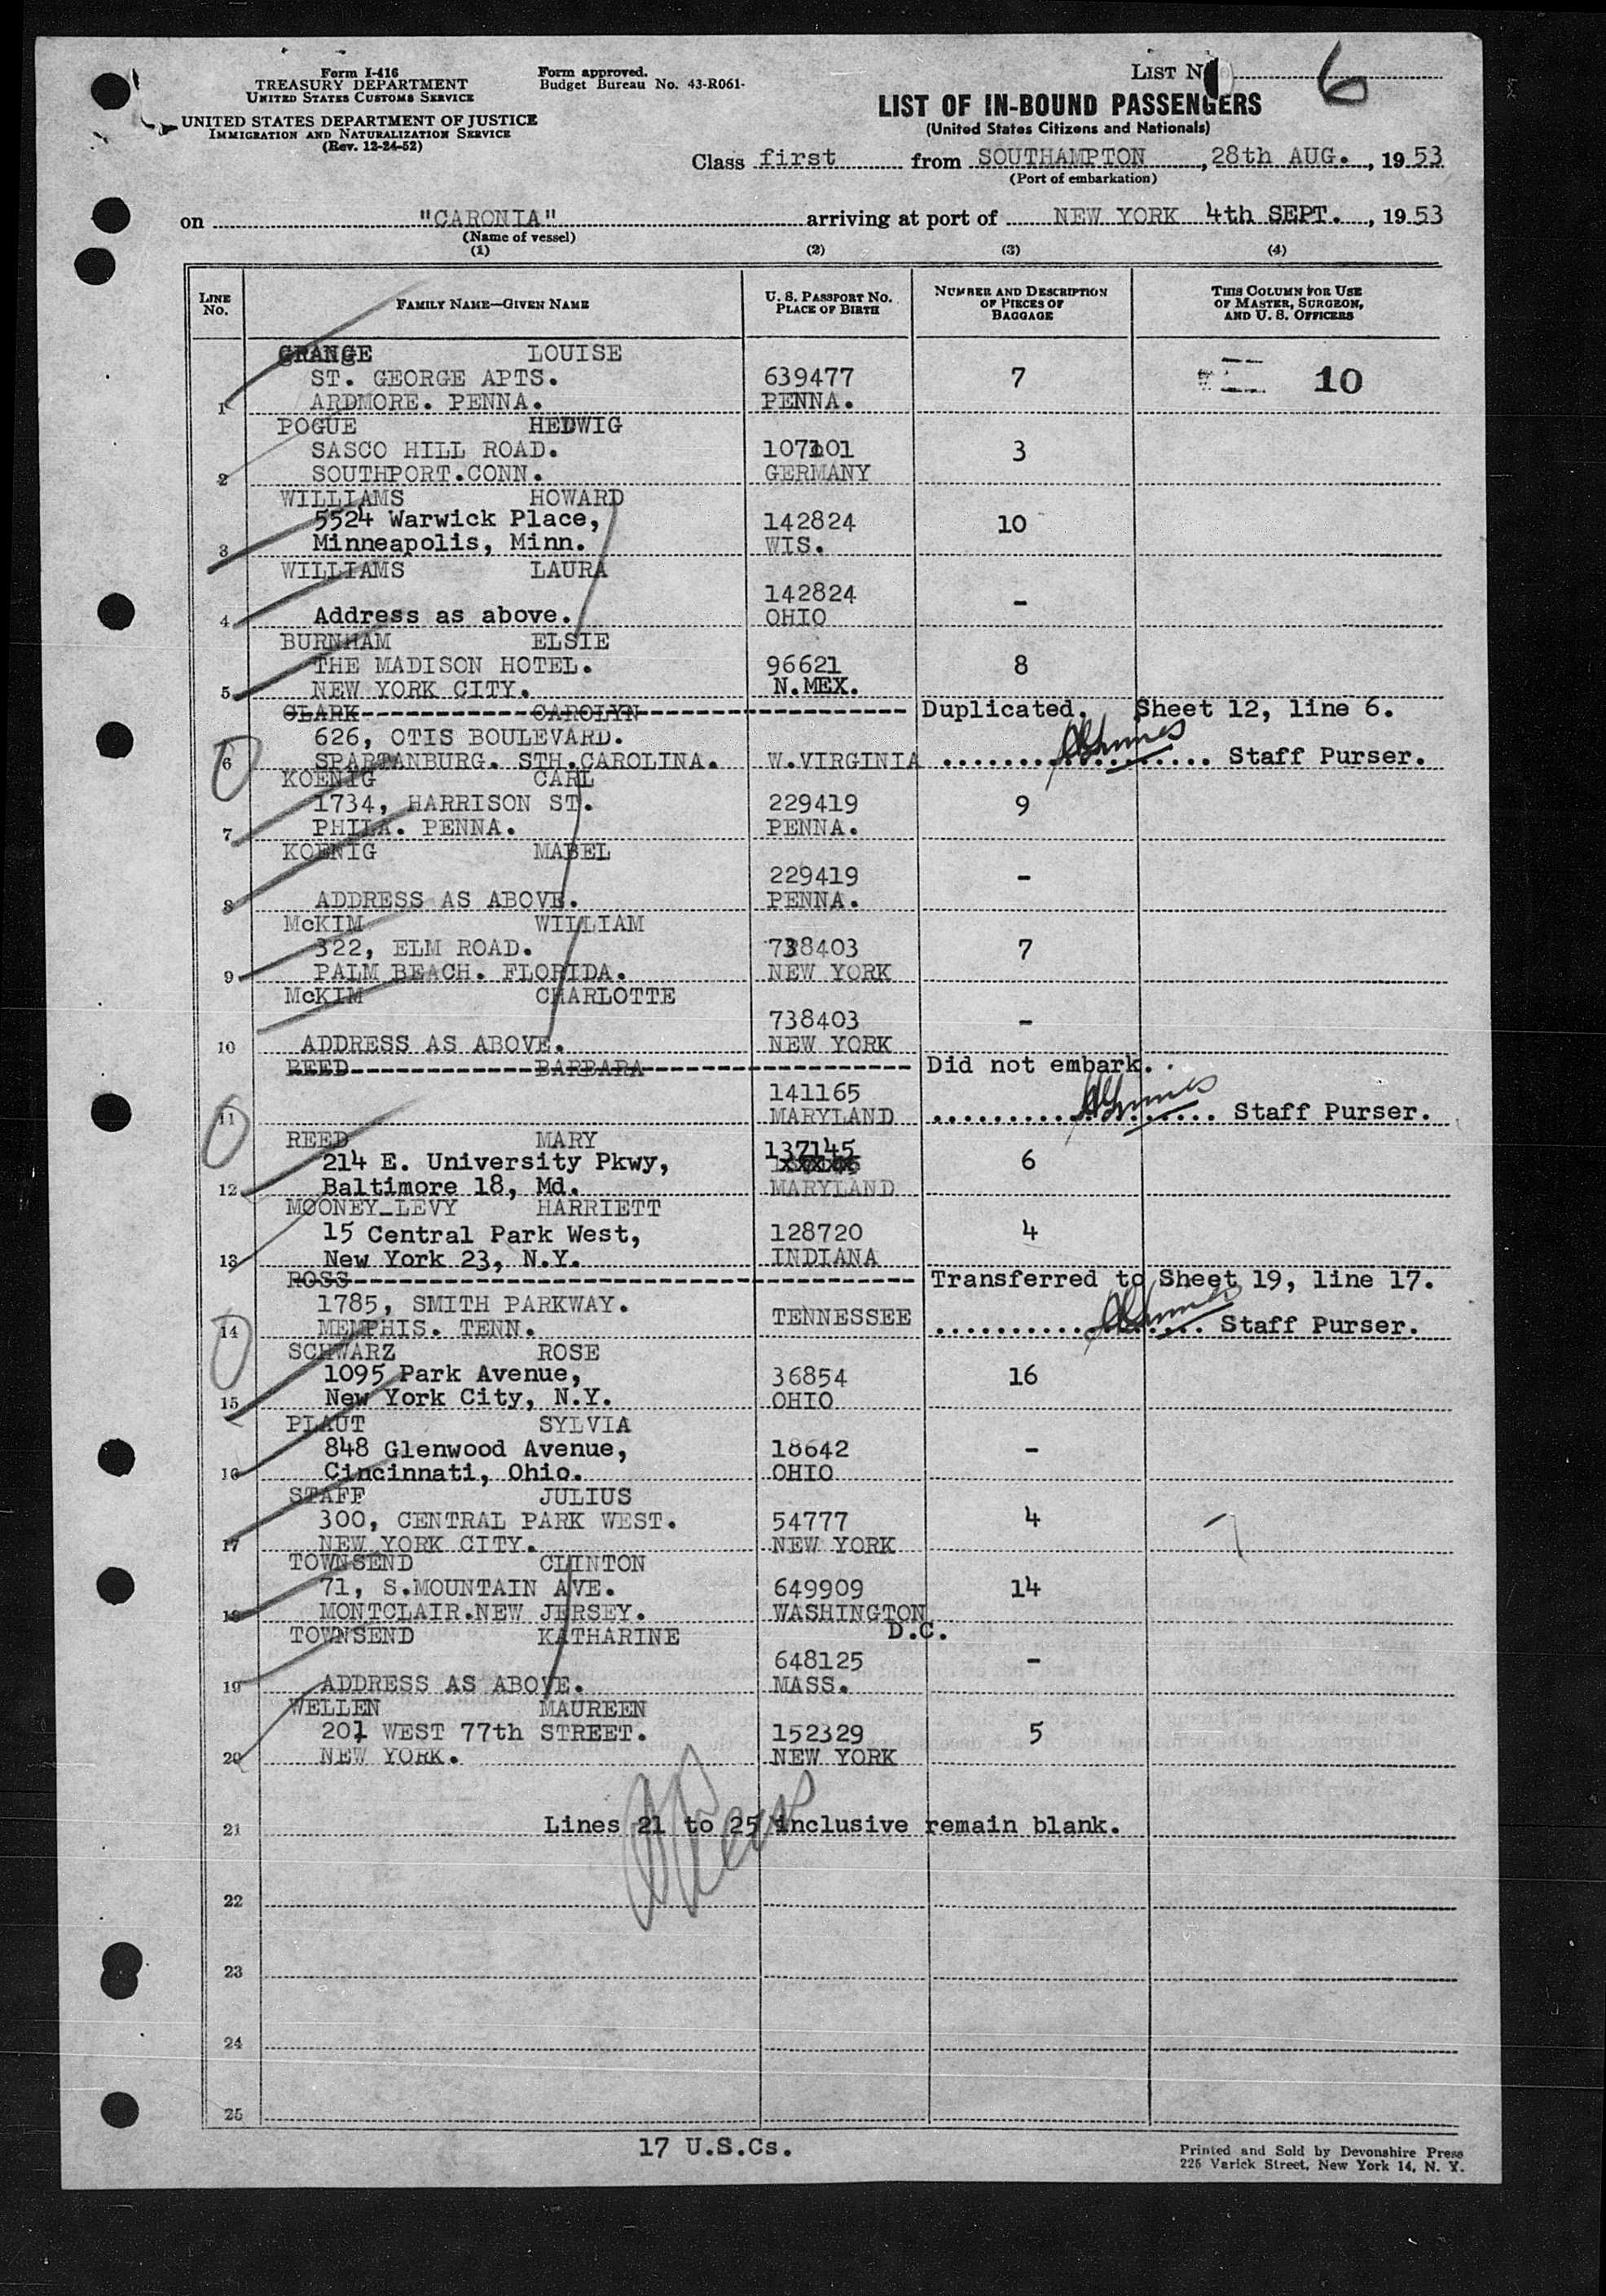 Form I-416
TREASURY DEPARTMENT
UNITED STATES CUSTOMS SERVICE
UNITED STATES DEPARTMENT OF JUSTICE
IMMIGRATION AND NATURALIZATION SERVICE
(Rev. 12-24-52)
Form approved.
Budget Bureau No. 43-R061-
LIST No. 6
LIST OF IN-BOUND PASSENGERS
(United States Citizens and Nationals)
Class first from SOUTHAMPTON, 28th AUG., 1953
(Port of embarkation)
on "CARONIA" arriving at port of NEW YORK 4th SEPT., 1953
(Name of vessel)
(1) (2) (3) (4)
LINE No. FAMILY NAME—GIVEN NAME U. S. PASSPORT No. PLACE OF BIRTH NUMBER AND DESCRIPTION OF PIECES OF BAGGAGE THIS COLUMN FOR USE OF MASTER, SURGEON, AND U. S. OFFICERS
GRANGE LOUISE
ST. GEORGE APTS. 639477 7 10
1 ARDMORE. PENNA. PENNA.
POGUE HEDWIG
SASCO HILL ROAD. 107101 3
2 SOUTHPORT.CONN. GERMANY
WILLIAMS HOWARD
5524 Warwick Place, 142824 10
3 Minneapolis, Minn. WIS.
WILLIAMS LAURA
142824 -
4 Address as above. OHIO
BURNHAM ELSIE
THE MADISON HOTEL. 96621 8
5 NEW YORK CITY. N.MEX.
CLARK CAROLYN Duplicated. Sheet 12, line 6.
626, OTIS BOULEVARD.
6 SPARTANBURG. STH.CAROLINA. W.VIRGINIA Staff Purser.
KOENIG CARL
1734, HARRISON ST. 229419 9
7 PHILA. PENNA. PENNA.
KOENIG MABEL
229419 -
8 ADDRESS AS ABOVE. PENNA.
McKIM WILLIAM
322, ELM ROAD. 738403 7
9 PALM BEACH. FLORIDA. NEW YORK
McKIM CHARLOTTE
738403 -
10 ADDRESS AS ABOVE. NEW YORK
REED BARBARA Did not embark.
141165
11 MARYLAND Staff Purser.
REED MARY 137145
214 E. University Pkwy, 6
12 Baltimore 18, Md. MARYLAND
MOONEY-LEVY HARRIETT
15 Central Park West, 128720 4
13 New York 23, N.Y. INDIANA
ROSS Transferred to Sheet 19, line 17.
1785, SMITH PARKWAY. TENNESSEE
14 MEMPHIS. TENN. Staff Purser.
SCHWARZ ROSE
1095 Park Avenue, 36854 16
15 New York City, N.Y. OHIO
PLAUT SYLVIA
848 Glenwood Avenue, 18642 -
16 Cincinnati, Ohio. OHIO
STAFF JULIUS
300, CENTRAL PARK WEST. 54777 4
17 NEW YORK CITY. NEW YORK
TOWNSEND CLINTON
71, S.MOUNTAIN AVE. 649909 14
18 MONTCLAIR.NEW JERSEY. WASHINGTON
TOWNSEND KATHARINE D.C.
648125 -
19 ADDRESS AS ABOVE. MASS.
WELLEN MAUREEN
201 WEST 77th STREET. 152329 5
20 NEW YORK. NEW YORK
21 Lines 21 to 25 inclusive remain blank.
22
23
24
25
17 U.S.Cs.
Printed and Sold by Devonshire Press
225 Varick Street, New York 14, N. Y.